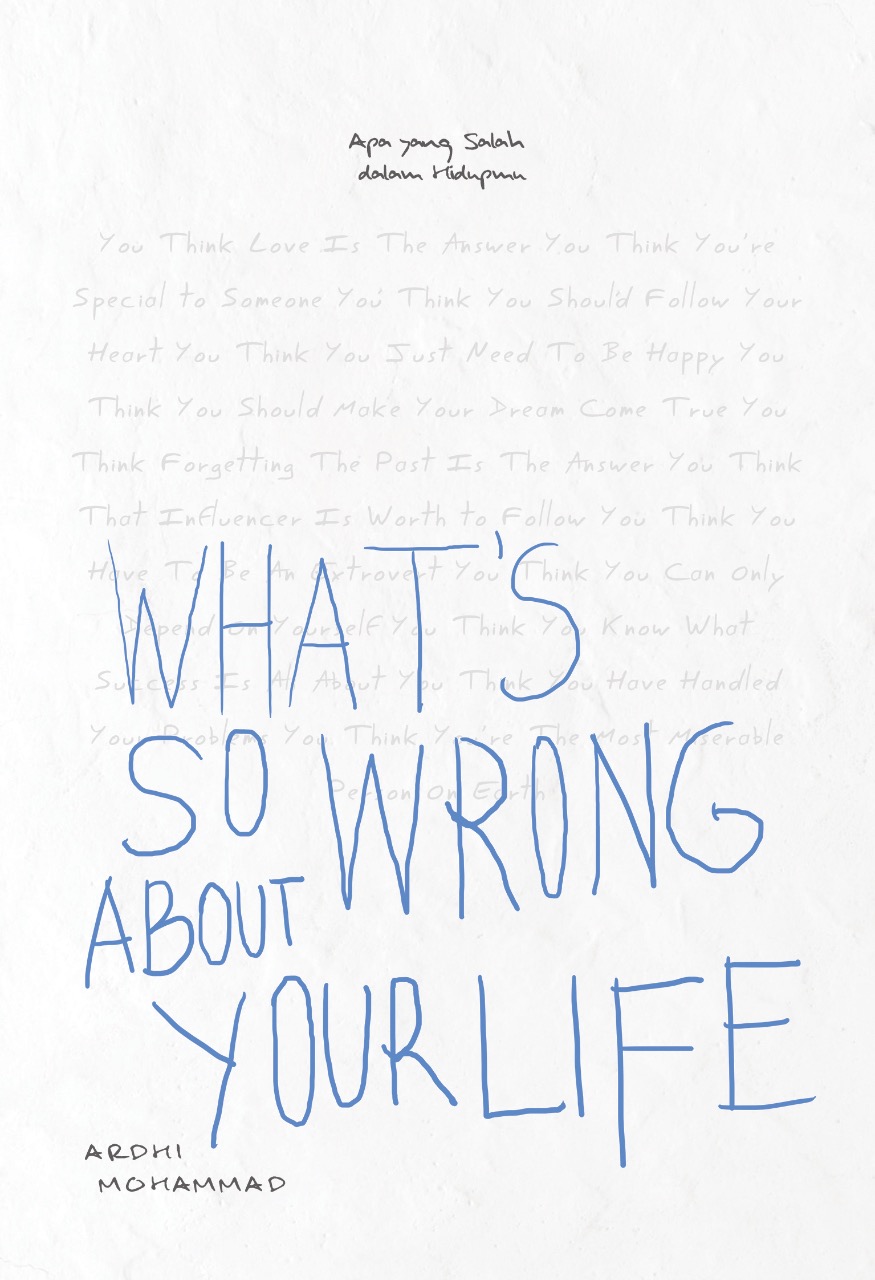 Apa yang Salah
dalam Hidupmu
You Think Love Is The Answer You Think You're
Special to Someone You Think You Should Follow Your
Heart You Think You Just Need To Be Happy You
Think You Should Make Your Dream Come True You
Think Forgetting The Past Is The Answer You Think
That Influencer Is Worth to Follow You Think You
Have To Be An Extrovert You Think You Can Only
Depend On Yourself You Think You Know What
Success Is All About You Think You Have Handled
Your Problems You Think You're The Most Miserable
Person On Earth
WHAT'S
SO WRONG
ABOUT
YOUR LIFE
ARDHI
MOHAMMAD